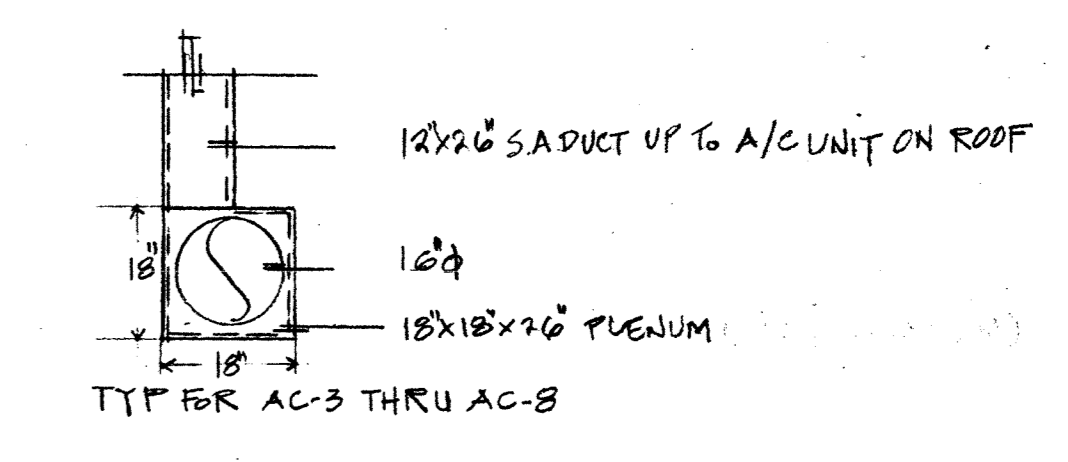 12"X26" S.A DUCT UP To A/C UNIT ON ROOF
18"
16"φ
18"X18"X26" PLENUM
18"
TYP FOR AC-3 THRU AC-8